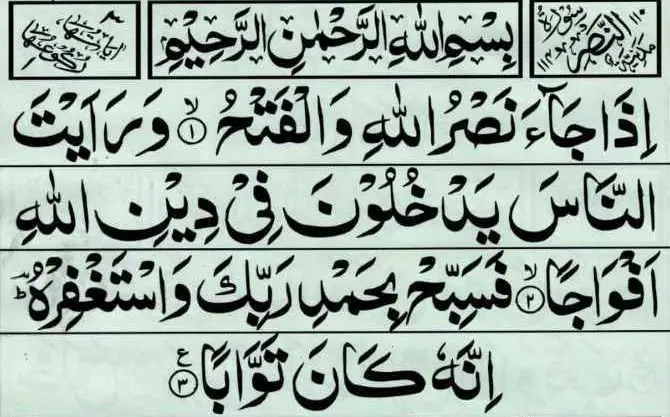 سُوْرَةُ النَّصْرِ مَدَنِيَّةٌ ١١٠
بِسْمِ اللهِ الرَّحْمٰنِ الرَّحِيْمِ
اٰيَاتُهَا ٣
رُكُوْعُهَا
اِذَا جَآءَ نَصْرُ اللهِ وَالْفَتْحُ ۙ‏﴿۱﴾ وَرَاَيْتَ
النَّاسَ يَدْخُلُوْنَ فِيْ دِيْنِ اللهِ
اَفْوَاجًا ۙ‏﴿۲﴾ فَسَبِّحْ بِحَمْدِ رَبِّكَ وَاسْتَغْفِرْهُ ؕ
اِنَّهٗ كَانَ تَوَّابًا ﴿۳﴾ ع